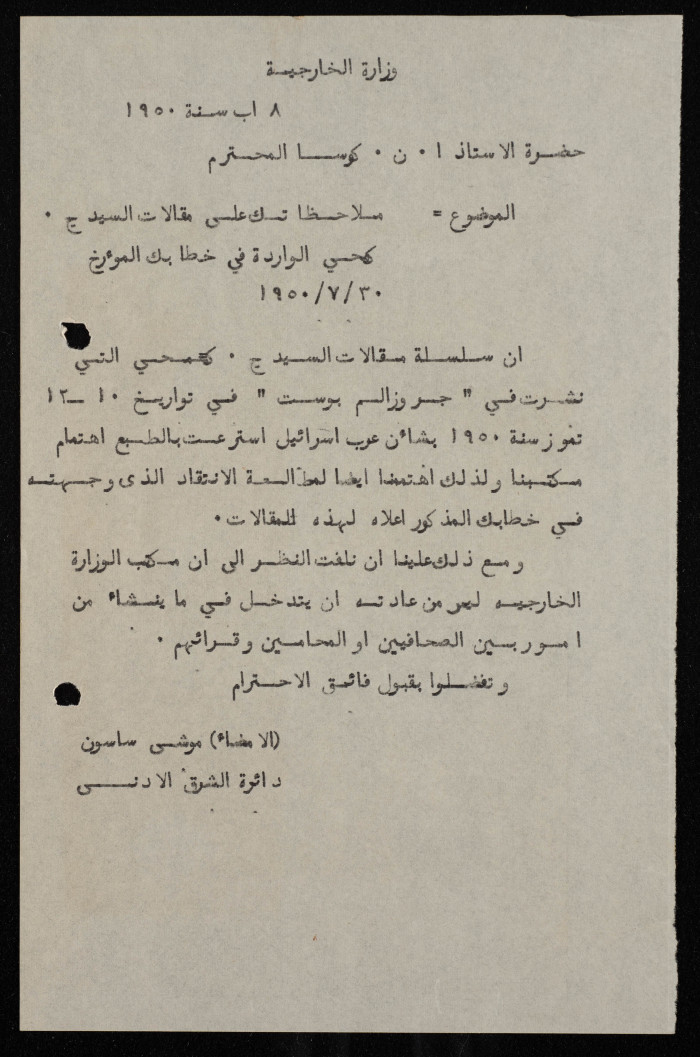 وزارة الخارجيـة
٨ اب سـنة ١٩٥٠
حضـرة الاستاذ ا ٠ ن ٠ كوسـا المحـترم
الموضوع = مـلاحـظا تـك علـى مقالات السيد ج ٠
كمحـي الواردة في خطابك الموٴرخ
١٩٥٠/٧/٣٠
ان سـلسـلة مـقالات السـيد ج ٠ كـمـحـي التـي
نشـرت فـي " جـر وزالـم بوسـت " فـي تواريـخ ١٠ ـ ١٢
تموز سنة ١٩٥٠ بشاٴن عرب اسرائيل استرعـت بالطـبع اهتمام
مـكتـبنا ولذلك اهتممنا ايضا لمطالـعـة الانتقاد الذى وجـهتـه
فـي خطابك المذكور اعلاه لهـذه المقالات٠
ومـع ذلك علينا ان نلفت النظـر الى ان مـكتب الوزارة
الخارجيـه ليس من عادتـه ان يتدخـل فـي ما ينـشاء من
امـور بـين الصحافيين او المحامـين وقـرائهم ٠
وتفضـلوا بقبول فائـق الاحـترام
(الامضاء) موشـى ساسون
دائرة الشرق الادنـى